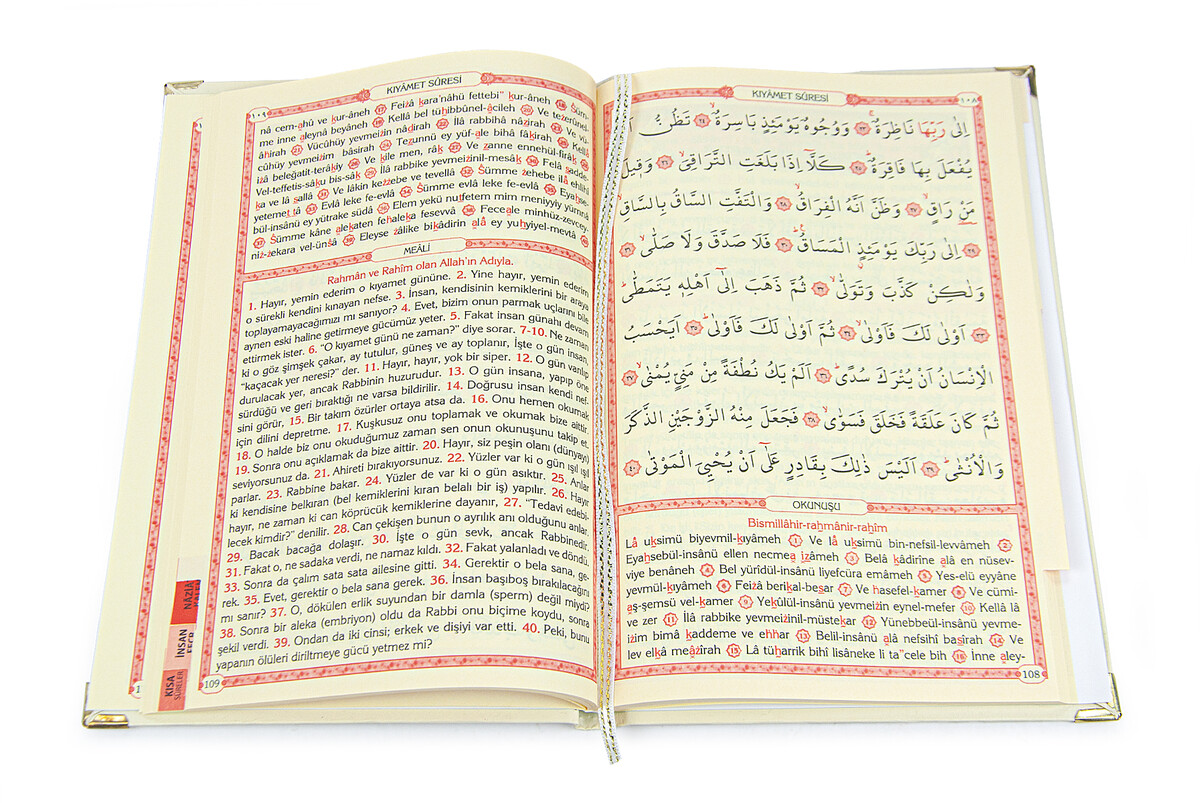 KIYÂMET SÛRESİ
١٠٨
اِلٰى رَبِّهَا نَاظِرَةٌۚ ٢٣ وَوُجُوهٌ يَوْمَئِذٍ بَاسِرَةٌۙ ٢٤ تَظُنُّ
يُفْعَلَ بِهَا فَاقِرَةٌۜ ٢٥ كَلَّٓا اِذَا بَلَغَتِ التَّرَاقِيَۙ ٢٦ وَقٖيلَ
مَنْ رَاقٍۙ ٢٧ وَظَنَّ اَنَّهُ الْفِرَاقُۙ ٢٨ وَالْتَفَّتِ السَّاقُ بِالسَّاقِۙ
٢٩ اِلٰى رَبِّكَ يَوْمَئِذٍ الْمَسَاقُۜ ٣٠ فَلَا صَدَّقَ وَلَا صَلّٰىۙ ٣١
وَلٰكِنْ كَذَّبَ وَتَوَلّٰىۙ ٣٢ ثُمَّ ذَهَبَ اِلٰٓى اَهْلِهٖ يَتَمَطّٰىۜ
٣٣ اَوْلٰى لَكَ فَاَوْلٰىۙ ٣٤ ثُمَّ اَوْلٰى لَكَ فَاَوْلٰىۜ ٣٥ اَيَحْسَبُ
الْاِنْسَانُ اَنْ يُتْرَكَ سُدًىۜ ٣٦ اَلَمْ يَكُ نُطْفَةً مِنْ مَنِيٍّ يُمْنٰىۙ ٣٧
ثُمَّ كَانَ عَلَقَةً فَخَلَقَ فَسَوّٰىۙ ٣٨ فَجَعَلَ مِنْهُ الزَّوْجَيْنِ الذَّكَرَ
وَالْاُنْثٰىۜ ٣٩ اَلَيْسَ ذٰلِكَ بِقَادِرٍ عَلٰٓى اَنْ يُحْيِيَ الْمَوْتٰى ٤٠
OKUNUŞU
Bismillâhir-rahmânir-rahîm
Lâ uksimü biyevmil-kıyâmeh 1 Ve lâ uksimü bin-nefsil-levvâmeh 2
Eyahsebül-insânü ellen necmea izâmeh 3 Belâ kâdirîne alâ en nüsev-
viye benâneh 4 Bel yürîdül-insânü liyefcüra emâmeh 5 Yes-elü eyyâne
yevmül-kıyâmeh 6 Feizâ berikal-besar 7 Ve hasefel-kamer 8 Ve cümi-
aş-şemsü vel-kamer 9 Yekûlül-insânü yevmeizin eynel-mefer 10 Kellâ lâ
ve zer 11 İlâ rabbike yevmeizinil-müstekar 12 Yünebbeül-insânü yevme-
izim bimâ kaddeme ve ehhar 13 Belil-insânü alâ nefsihî basîrah 14 Ve
lev elkâ meâzîrah 15 Lâ tüharrik bihî lisâneke li ta"cele bih 16 İnne aley-
108
KIYÂMET SÛRESİ
١٠٩
nâ cem-ahû ve kur-âneh 17 Feizâ kara'nâhü fettebi" kur-âneh 18 Süm-
me inne aleynâ beyâneh 19 Kellâ bel tühıbbûnel-âcileh 20 Ve tezerûnel-
âhirah 21 Vücûhüy yevmeizin nâdirah 22 İlâ rabbihâ nâzirah 23 Ve vü-
cûhüy yevmeizim bâsirah 24 Tezunnü ey yüf-ale bihâ fâkirah 25 Kellâ
izâ beleğatit-terâkıy 26 Ve kîle men, râk 27 Ve zanne ennehül-firâk 28
Vel-teffetis-sâku bis-sâk 29 İlâ rabbike yevmeizinil-mesâk 30 Felâ sadde-
ka ve lâ sallâ 31 Ve lâkin kezzebe ve tevellâ 32 Sümme zehebe ilâ ehlihî
yetemettâ 33 Evlâ leke fe-evlâ 34 Sümme evlâ leke fe-evlâ 35 Eyahse-
bül-insânü ey yütrake südâ 36 Elem yekü nutfetem mim meniyyiy yümnâ
37 Sümme kâne alekaten fehaleka fesevvâ 38 Feceale minhüz-zevcey-
niz-zekara vel-ünsâ 39 Eleyse zâlike bikâdirin alâ ey yuhyiyel-mevtâ 40
MEÂLİ
Rahmân ve Rahîm olan Allah'ın Adıyla.
1. Hayır, yemin ederim o kıyamet gününe. 2. Yine hayır, yemin ederim
o sürekli kendini kınayan nefse. 3. İnsan, kendisinin kemiklerini bir araya
toplayamayacağımızı mı sanıyor? 4. Evet, bizim onun parmak uçlarını bile
aynen eski haline getirmeye gücümüz yeter. 5. Fakat insan günahı devam
ettirmek ister. 6. "O kıyamet günü ne zaman?" diye sorar. 7-10. Ne zaman
ki o göz şimşek çakar, ay tutulur, güneş ve ay toplanır, İşte o gün insan,
"kaçacak yer neresi?" der. 11. Hayır, hayır, yok bir siper. 12. O gün varılıp
durulacak yer, ancak Rabbinin huzurudur. 13. O gün insana, yapıp öne
sürdüğü ve geri bıraktığı ne varsa bildirilir. 14. Doğrusu insan kendi nef-
sini görür, 15. Bir takım özürler ortaya atsa da. 16. Onu hemen okumak
için dilini depretme. 17. Kuşkusuz onu toplamak ve okumak bize aittir.
18. O halde biz onu okuduğumuz zaman sen onun okunuşunu takip et.
19. Sonra onu açıklamak da bize aittir. 20. Hayır, siz peşin olanı (dünyayı)
seviyorsunuz da. 21. Ahireti bırakıyorsunuz. 22. Yüzler var ki o gün ışıl ışıl
parlar. 23. Rabbine bakar. 24. Yüzler de var ki o gün asıktır. 25. Anlar
ki kendisine belkıran (bel kemiklerini kıran belalı bir iş) yapılır. 26. Hayır
hayır, ne zaman ki can köprücük kemiklerine dayanır, 27. "Tedavi edebi-
lecek kimdir?" denilir. 28. Can çekişen bunun o ayrılık anı olduğunu anlar.
29. Bacak bacağa dolaşır. 30. İşte o gün sevk, ancak Rabbinedir.
31. Fakat o, ne sadaka verdi, ne namaz kıldı. 32. Fakat yalanladı ve döndü.
33. Sonra da çalım sata sata ailesine gitti. 34. Gerektir o bela sana, ge-
rek. 35. Evet, gerektir o bela sana gerek. 36. İnsan başıboş bırakılacağını
mı sanır? 37. O, dökülen erlik suyundan bir damla (sperm) değil miydi?
38. Sonra bir aleka (embriyon) oldu da Rabbi onu biçime koydu, sonra
şekil verdi. 39. Ondan da iki cinsi; erkek ve dişiyi var etti. 40. Peki, bunu
yapanın ölüleri diriltmeye gücü yetmez mi?
109
NÂZİÂ
İNSAN
FECR
KISA
SÛRELER